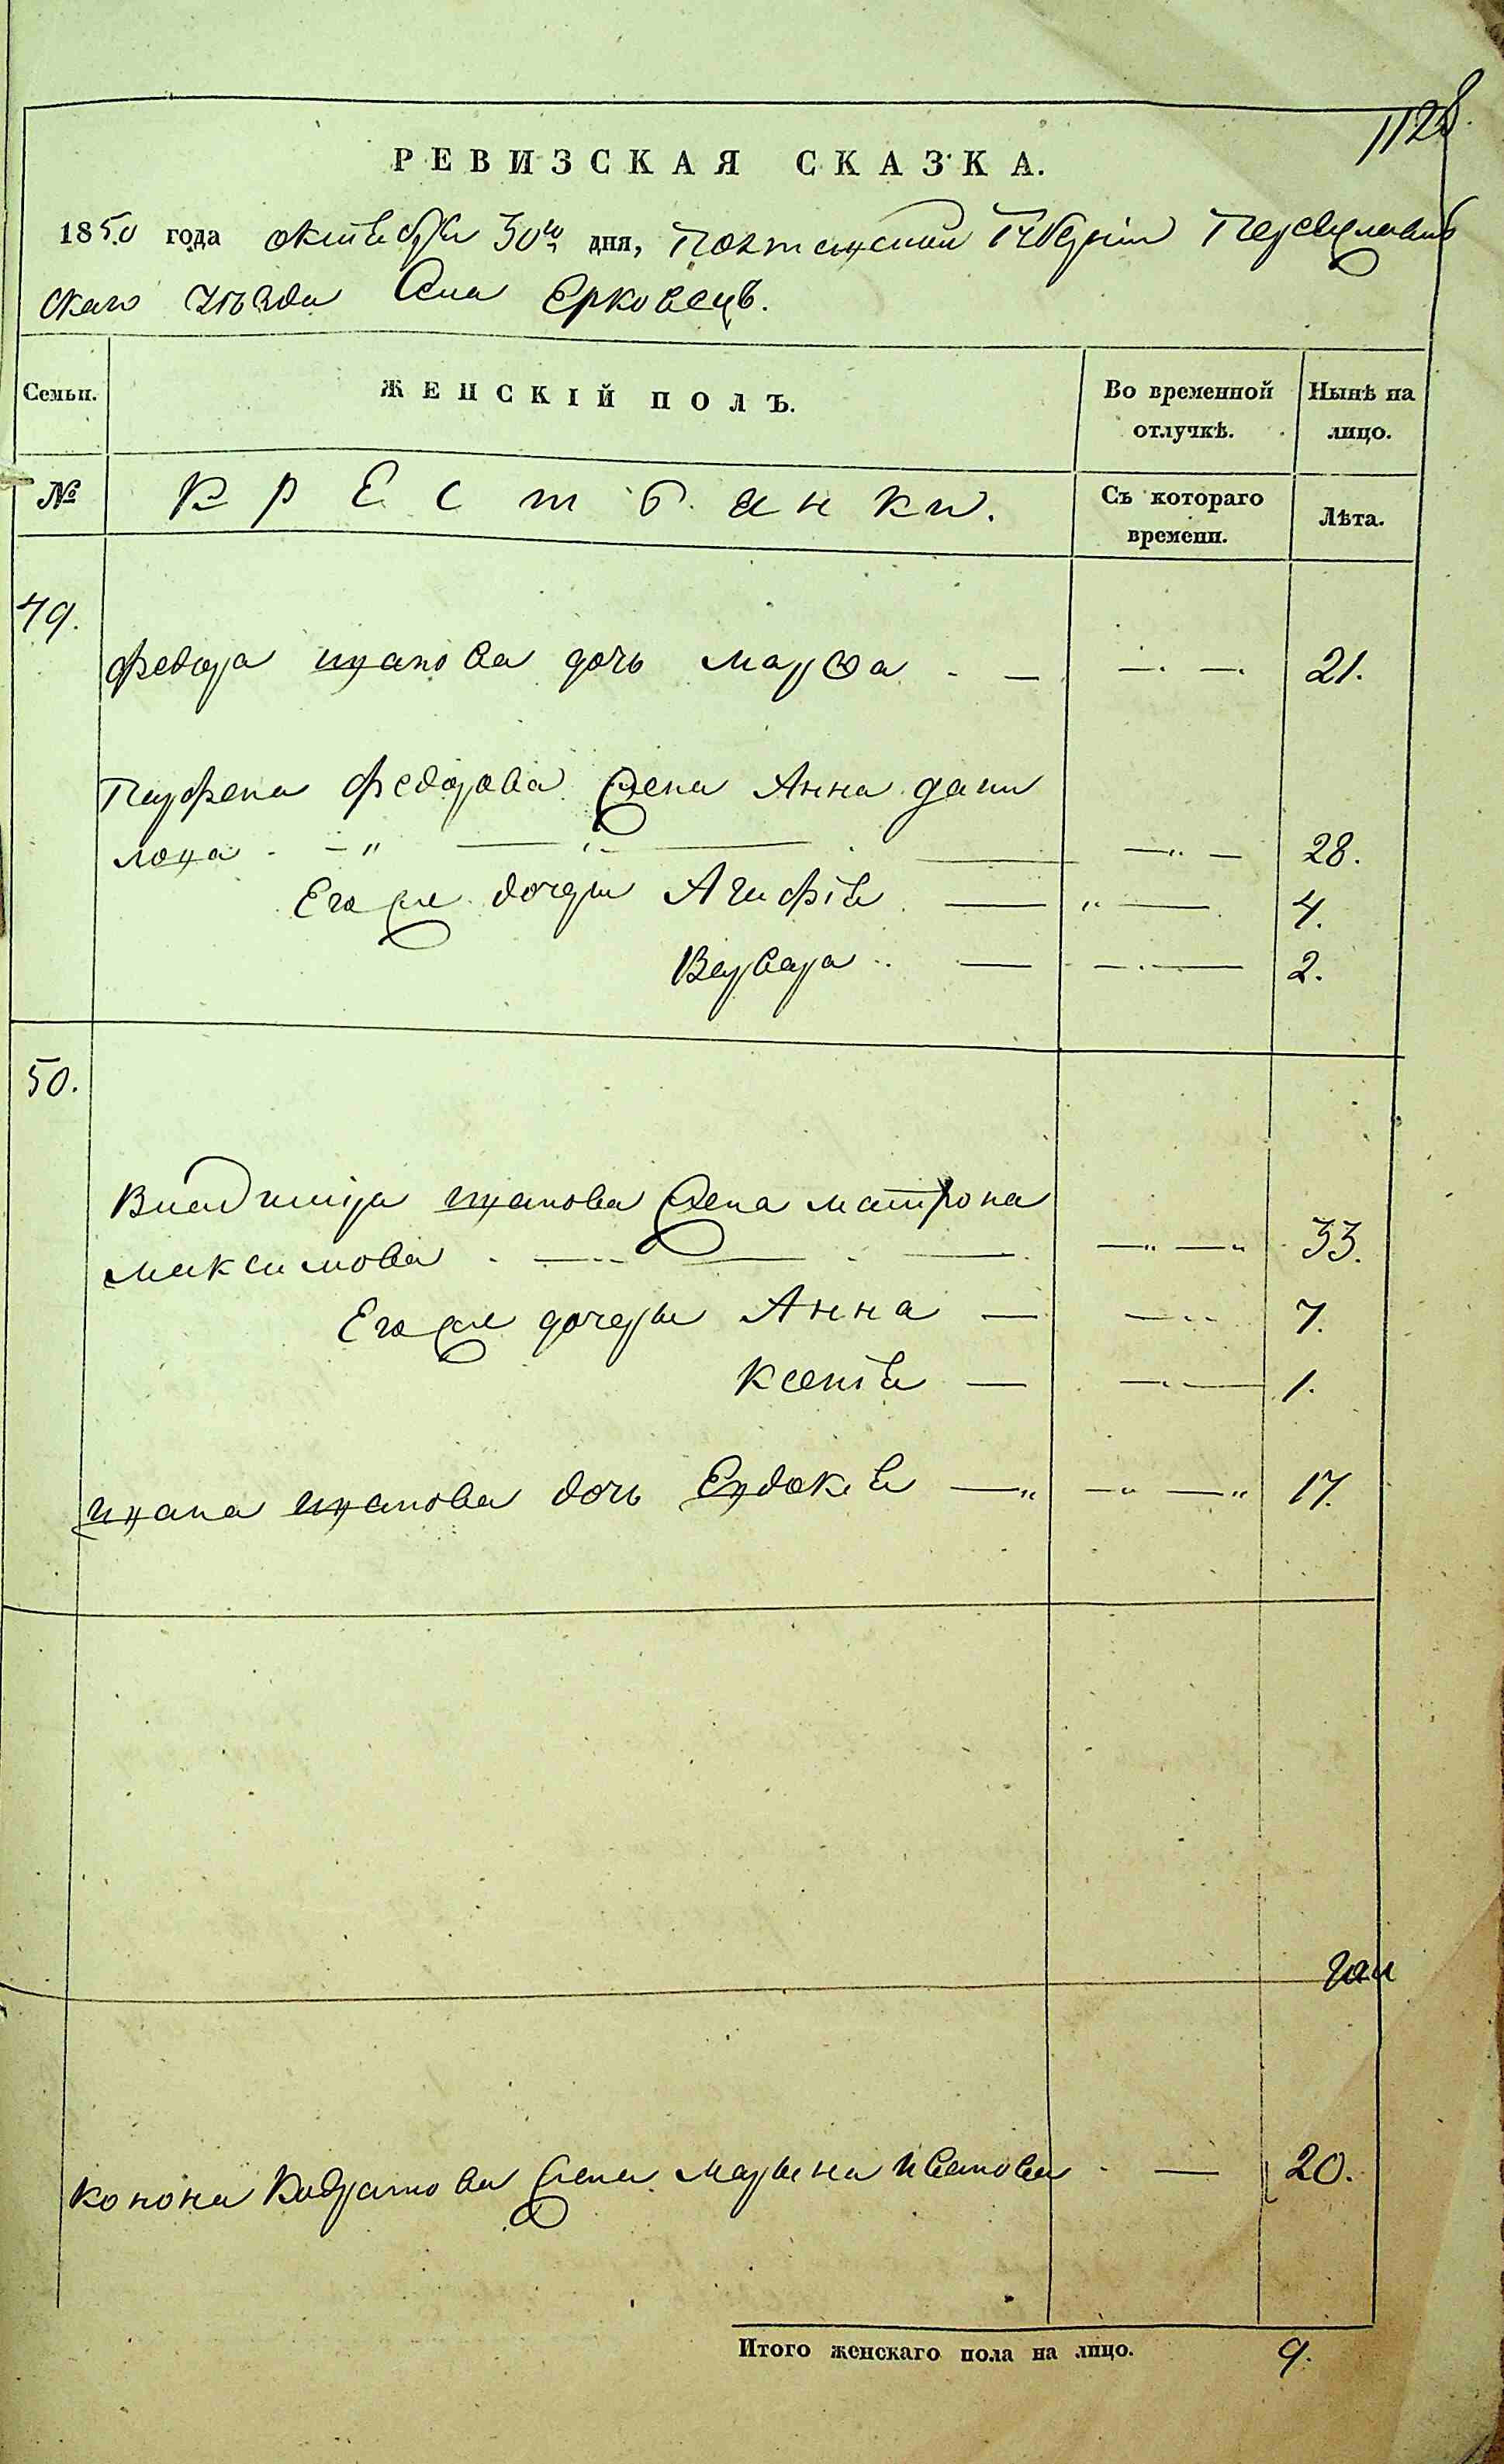 1128.
РЕВИЗСКАЯ СКАЗКА.
1850 года октября 30го дня, Полтавской Губерніи Переяслав
скаго уѣзда Села Ерковецъ.
Семьи. ЖЕНСКІЙ ПОЛЪ. Во временной отлучкѣ. Нынѣ на лицо.
№ Крестьянки. Съ котораго времени. Лѣта.
49.
Федора Иванова дочь Марѳа 21.
Парфена Федорова жена Анна Дани
лова 28.
Его же дочери Агафія 4.
Варвара 2.
50.
Владимира Иванова жена Матрона
Максимова 33.
Его же дочери Анна 7.
Ксенія 1.
Ивана Иванова дочь Евдокія 17.
Конона жена Марьина Иванова 20.
Итого женскаго пола на лицо. 9.